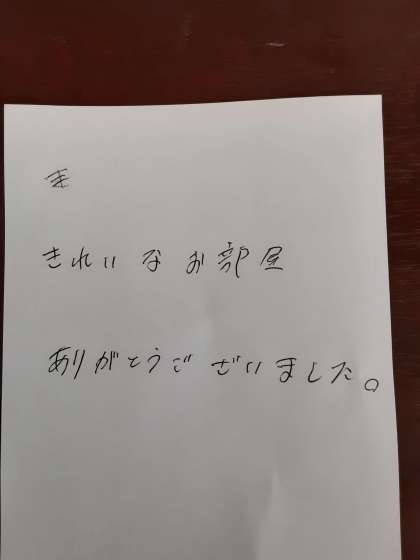 きれいなお部屋
ありがとうございました。